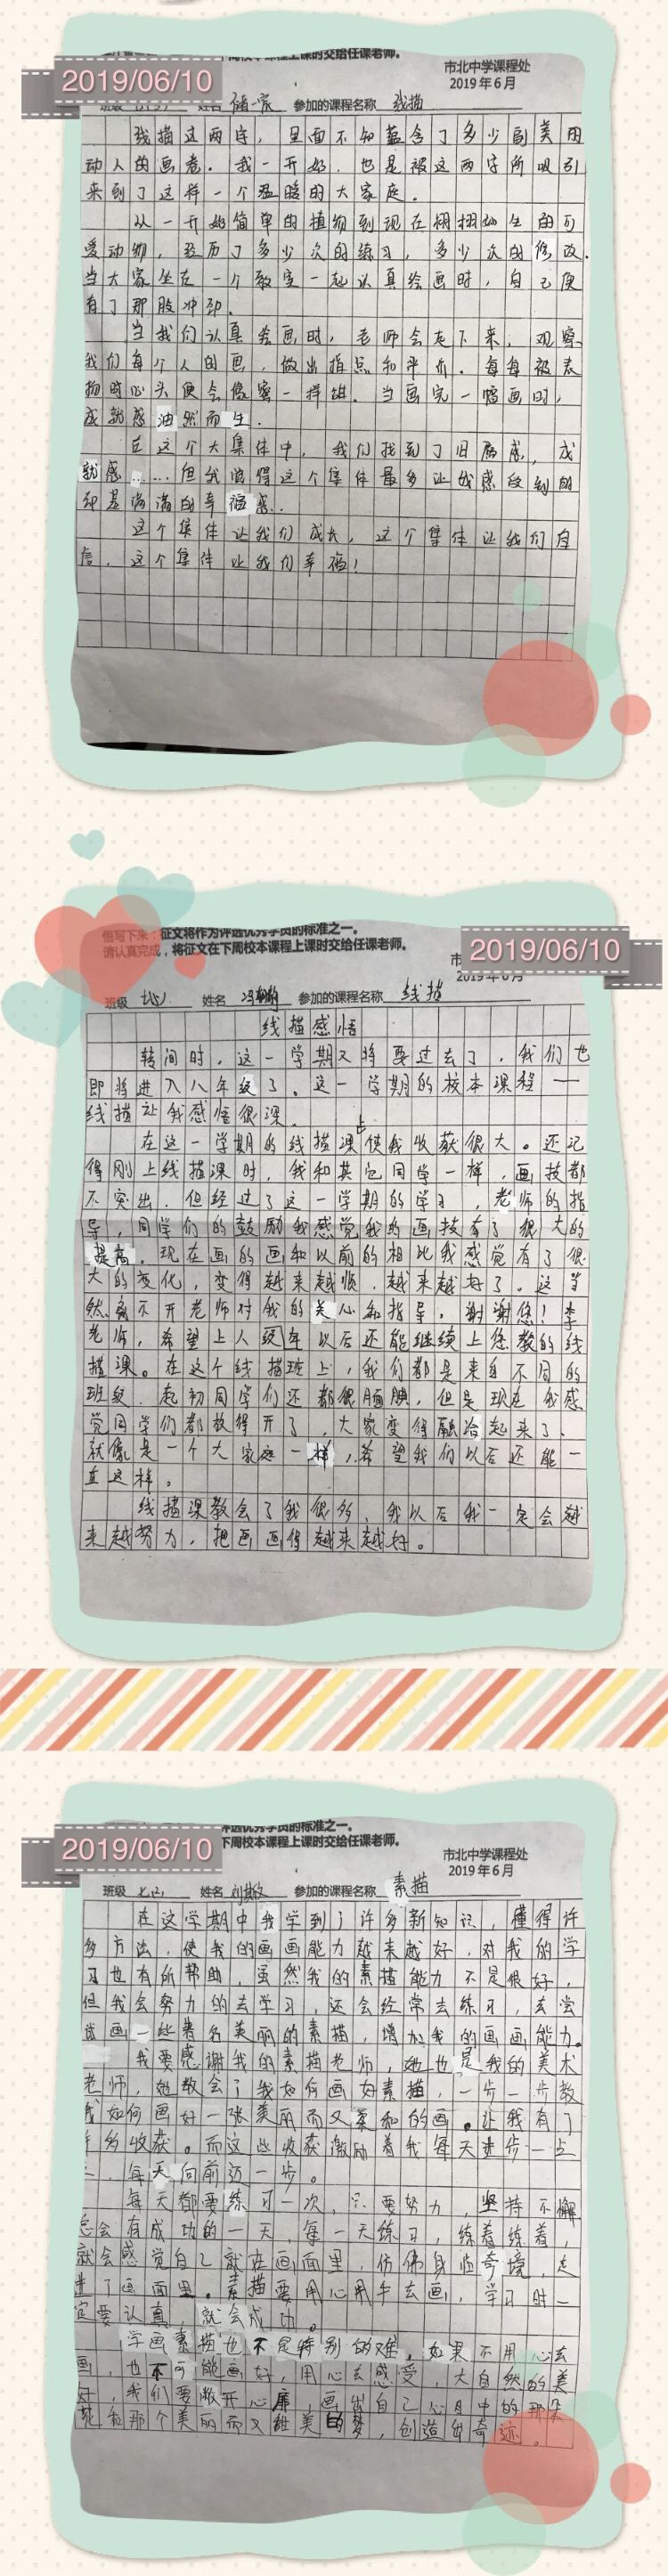 下周校本课程上课时交给任课老师。
2019/06/10
市北中学课程处
2019年6月
班级 姓名 参加的课程名称 线描
线描这两字，里面不知蕴含了多少副美丽
动人的画卷。我一开始，也是被这两字所吸引
来到了这样一个温暖的大家庭。
从一开始简单的植物到现在栩栩如生的可
爱动物，经历了多少次的练习，多少次的修改.
当大家坐在一个教室一起认真绘画时，自己便
有了那股冲劲.
当我们认真绘画时，老师会走下来，观察
我们每个人的画，做出指点和评价。每每被表
扬时心头便会像蜜一样甜。当画完一幅画时，
成就感油然而生.
在这个大集体中，我们找到了归属感，成
就感……但我觉得这个集体最多让我感受到的
却是满满的幸福感..
这个集体让我们成长，这个集体让我们自
信，这个集体让我们幸福！
悟写下来：征文将作为评选优秀学员的标准之一。
请认真完成，将征文在下周校本课程上课时交给任课老师。
2019/06/10
2019年6月
班级 姓名 参加的课程名称 线描
线描感悟
转间时，这一学期又将要过去了，我们也
即将进入八年级了。这一学期的校本课程——
线描让我感悟很深.
在这一学期的线描课上使我收获很大。还记
得刚上线描课时，我和其它同学一样，画技都
不突出.但经过了这一学期的学习，老师的指
导，同学们的鼓励我感觉我的画技有了很大的
提高.现在画的画和以前的相比我感觉有了很
大的变化，变得越来越顺，越来越好了。这当
然离不开老师对我的关心和指导，谢谢您！李
老师，希望上八级年以后还能继续上您教的线
描课。在这个线描班上，我们都是来自不同的
班级.起初同学们还都很腼腆，但是现在我感
觉同学们都放得开了，大家变得融洽起来了.
就像是一个大家庭一样，希望我们以后还能一
直这样。
线描课教会了我很多，我以后我一定会越
来越努力，把画画得越来越好。
评选优秀学员的标准之一。
2019/06/10
下周校本课程上课时交给任课老师。
市北中学课程处
2019年6月
班级 姓名 参加的课程名称 素描
在这学期中我学到了许多新知识，懂得许
多方法，使我的画画能力越来越好，对我的学
习也有所帮助，虽然我的素描能力不是很好，
但我会努力的去学习，还会经常去练习，去尝
试画一些著名美丽的素描，增加我的画画能力。
我要感谢我的素描老师，她也是我的美术
老师，她教会了我如何画好素描，一步一步教
我如何画好一张美丽而又柔和的画。让我有了
许多收获。而这些收获激励着我每天进步一点
，每天向前迈一步。
每天都要练习一次，只要努力，坚持不懈
总会有成功的一天，每一天练习，练着练着，
就会感觉自己就在画面里，仿佛身临奇境，走
进了画面里。素描要用心用手去画，学习时一
定要认真，就会成功。
学画素描也不是特别的难，如果不用心去
画，也不可能画好，用心去感受，大自然的美
好，我们要敞开心扉，画出自己心目中的那朵
花和那个美丽而又唯美的梦，创造出奇迹。